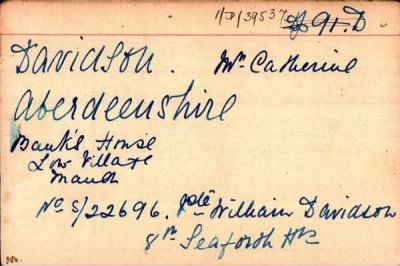 1/D/39537 91.D
Davidson. Mrs Catherine
Aberdeenshire
Bank's House
Low Village
Maud
No S/22696. Pte William Davidson
8th Seaforth Hrs